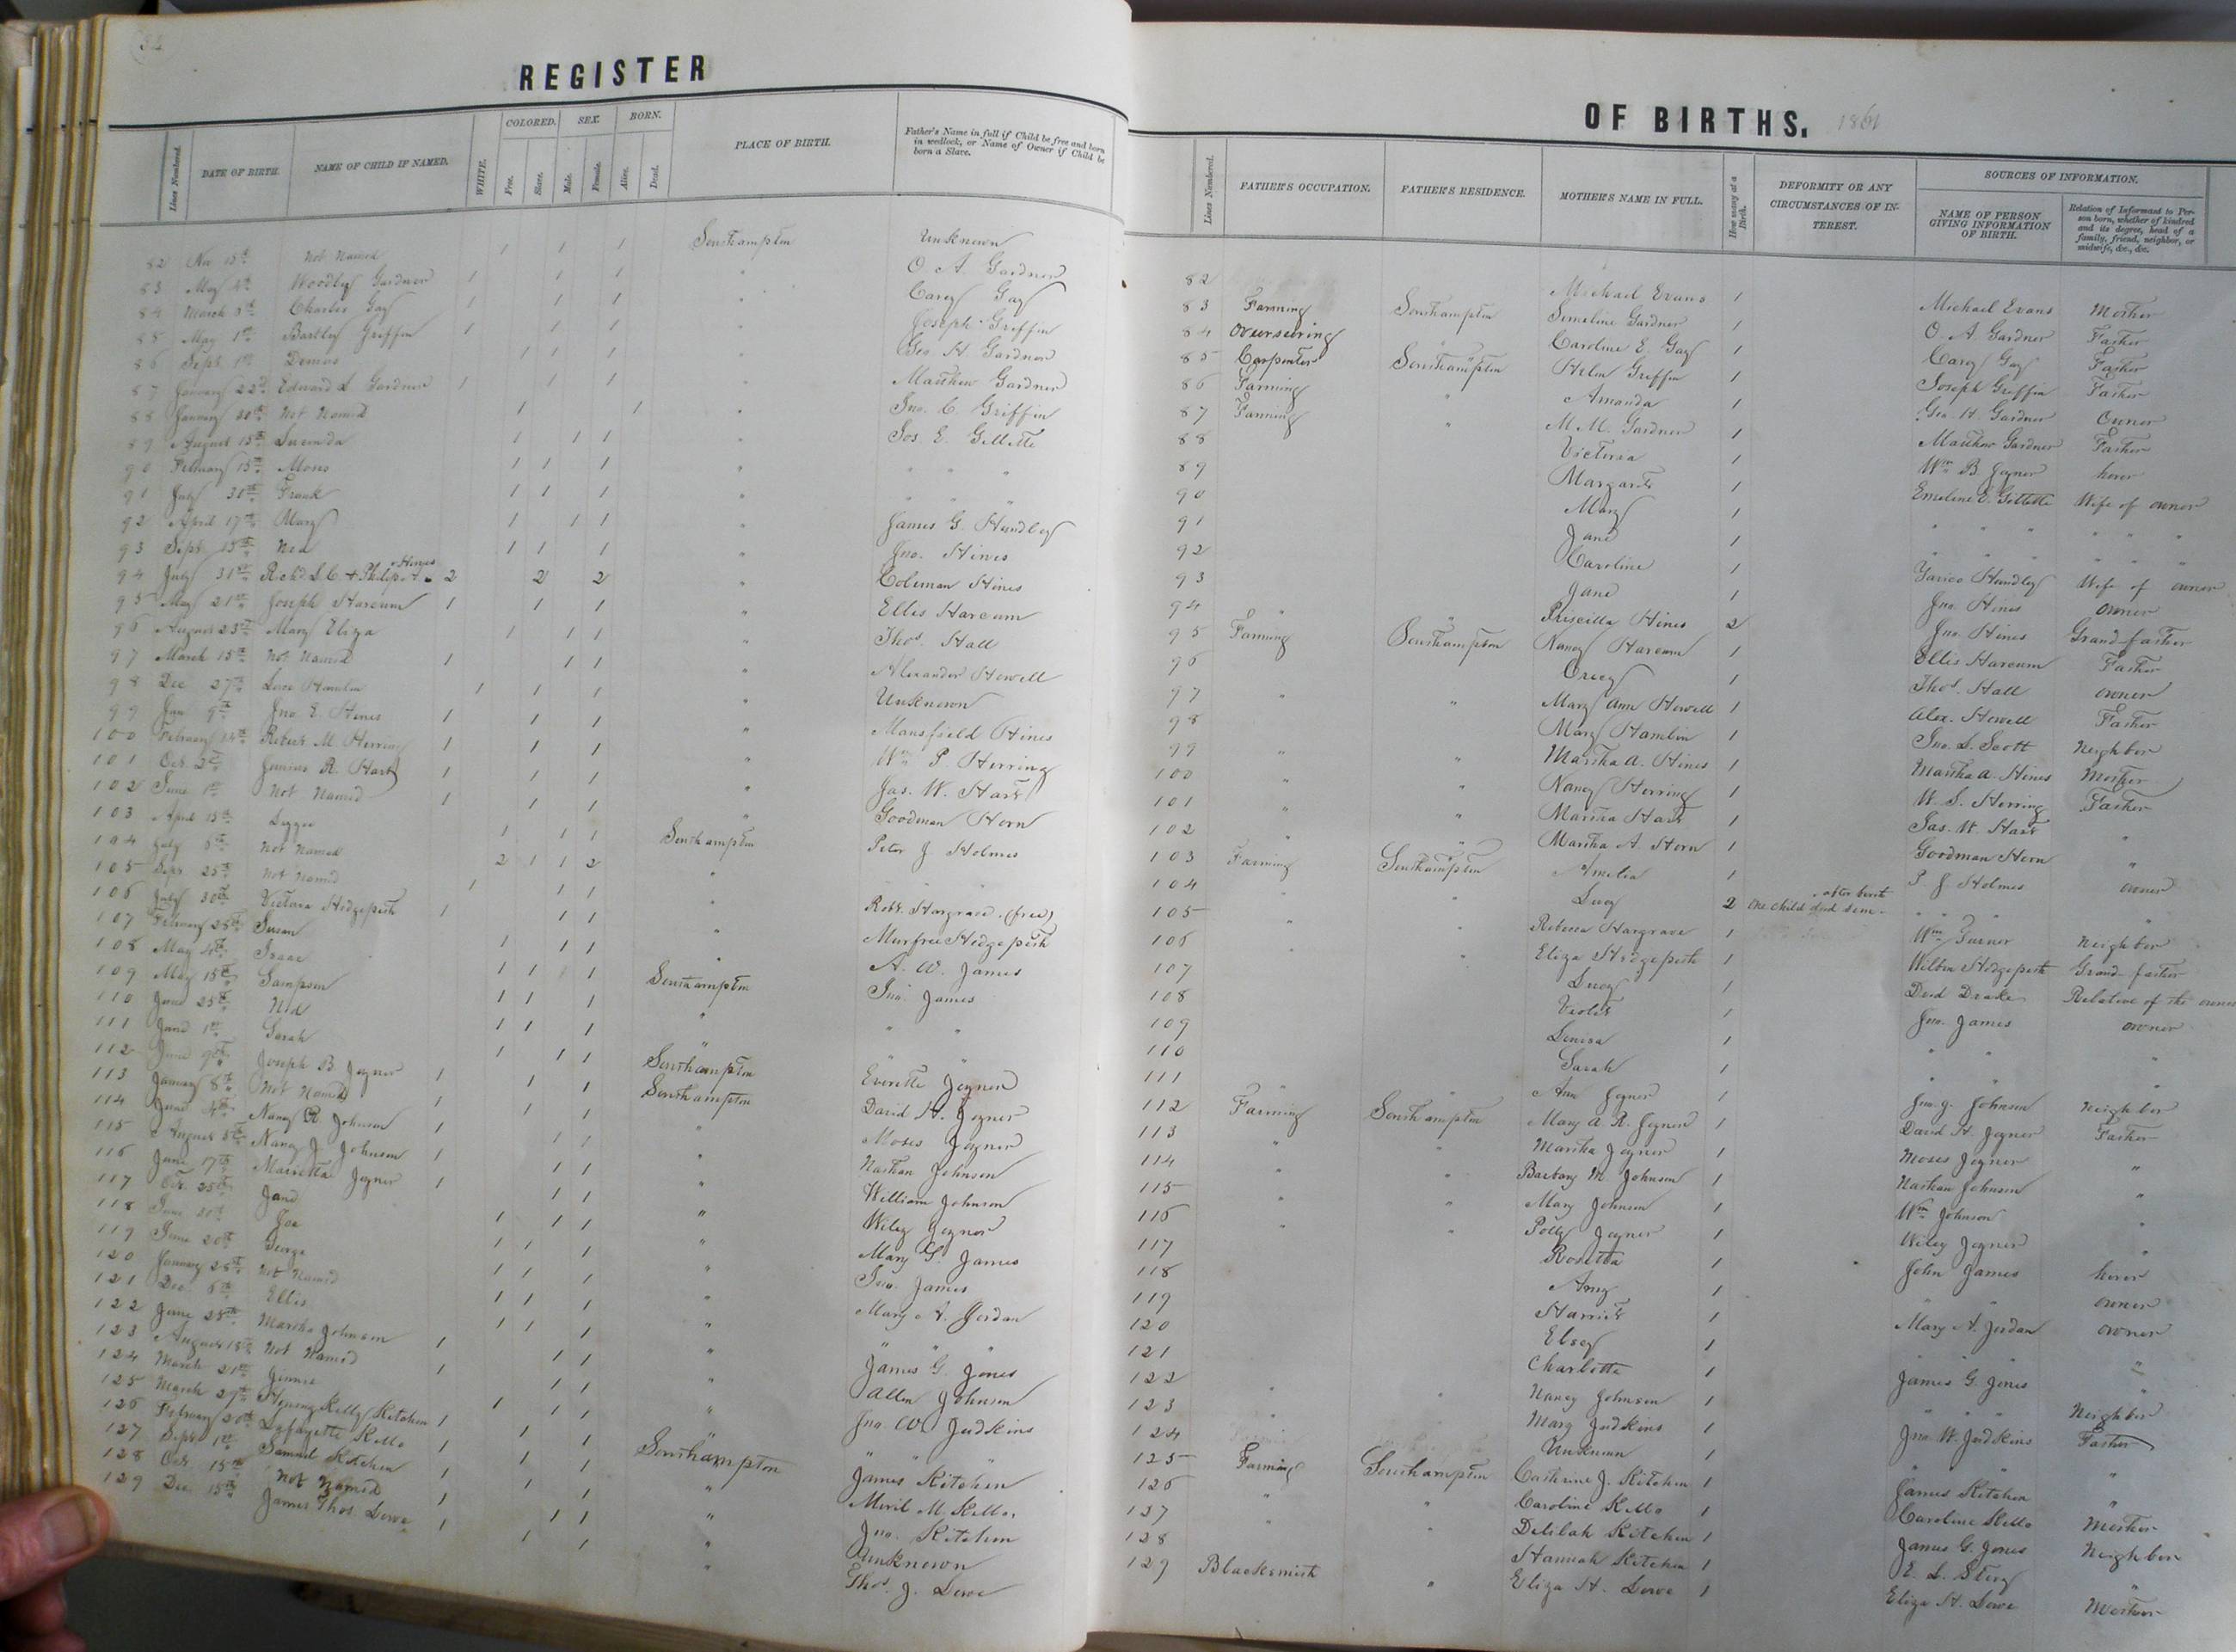 REGISTER
COLORED. SEX. BORN.
Lines Numbered. DATE OF BIRTH. NAME OF CHILD IF NAMED. WHITE. Free. Slave. Male. Female. Alive. Dead. PLACE OF BIRTH. Father's Name in full if Child be free and born in wedlock, or Name of Owner if Child be born a Slave.
82 Nov 15th Not Named 1 1 1 Southampton Unknown
83 May 4th Woodley Gardner 1 1 1 " O. A. Gardner
84 March Charlie Gay 1 1 1 " Carey Gay
85 May 1st Bartley Griffin 1 1 1 Joseph Griffin
86 Sept 1st 1 1 1 Geo. H. Gardner
87 January 22nd Edward L Gardner 1 1 1 " Matthew Gardner
88 January 30th Not Named 1 1 " Jno. C. Griffin
89 August 15th Lucinda 1 1 1 " Jos. E. Gillette
90 February 15th Moses 1 1 1 " " " "
91 July 31st Frank 1 1 1 " " " "
92 April 17th Mary 1 1 1 " James G. Handley
93 Sept 15th Ned 1 1 1 " Jno. Hines
94 July 31st Richd. L. C. & Philip A. Hines 2 2 2 " Coleman Hines
95 May 21st Joseph Harcum 1 1 1 " Ellis Harcum
96 August 23rd Mary Eliza 1 1 1 " Thos. Hall
97 March 15th Not Named 1 1 1 " Alexander Howell
98 Dec 27th Hamlin 1 1 1 " Unknown
99 Jan 9th Jno E. Hines 1 1 1 " Mansfield Hines
100 February 14th Robert M. Herring 1 1 1 " Wm P. Herring
101 Oct. 2nd Junius R. Hart 1 1 1 " Jas. W. Hart
102 June 1st Not Named 1 1 1 " Goodman Horn
103 April 15th 1 1 1 Southampton Peter J Holmes
104 July 8th Not Named 2 1 1 2 " " "
105 Sept. 25th Not Named 1 1 1 " Robt. Hargrave (free)
106 July 30th Victoria Hedgepeth 1 1 1 " Murfree Hedgepeth
107 February 28th Susan 1 1 1 " A. W. James
108 May 4th Isaac 1 1 1 Southampton Jno. James
109 May 15th Sampson 1 1 1 " " "
110 June 25th Ned 1 1 1 " " "
111 June 1st Sarah 1 1 1 Southampton Everette Joyner
112 June 9th Joseph B. Joyner 1 1 1 Southampton David H. Joyner
113 January 8th Not Named 1 1 1 " Moses Joyner
114 June 4th Nancy R. Johnson 1 1 1 " Nathan Johnson
115 August 5th Nancy J Johnson 1 1 1 " William Johnson
116 June 17th Marietta Joyner 1 1 1 " Wiley Joyner
117 Oct. 25th Jane 1 1 1 " Mary G. James
118 June 21st Joe 1 1 1 " Jno. James
119 June 20th George 1 1 1 " Mary A. Jordan
120 January 28th Not Named 1 1 1 " " " "
121 Dec. 6th Ellis 1 1 1 " James G. Jones
122 June 25th Martha Johnson 1 1 1 " Allen Johnson
123 August 15th Not Named 1 1 1 " Jno W Judkins
124 March 21st Jennie 1 1 1 " " "
125 March 27th Kelly Kitchen 1 1 1 Southampton James Kitchen
126 February 20th Lafayette Kello 1 1 1 " Miril M. Kello
127 Sept 1st Samuel Kitchen 1 1 1 " Jno. Kitchen
128 Oct. 15th Not Named 1 1 1 " Unknown
129 Dec. 15th James Thos Lowe 1 1 1 " Thos. J. Lowe
OF BIRTHS. 1861
Lines Numbered. FATHER'S OCCUPATION. FATHER'S RESIDENCE. MOTHER'S NAME IN FULL. How many at a Birth. DEFORMITY OR ANY CIRCUMSTANCES OF INTEREST. SOURCES OF INFORMATION.
NAME OF PERSON GIVING INFORMATION OF BIRTH. Relation of Informant to Person born, whether of kindred and its degree, head of a family, friend, neighbor, or midwife, &c., &c.
82 Michael Evans 1 Michael Evans Mother
83 Farming Southampton Emeline Gardner 1 O A Gardner Father
84 Overseering Caroline E. Gay 1 Carey Gay Father
85 Carpenter Southampton Helen Griffin 1 Joseph Griffin Father
86 Farming " Amanda 1 Geo. H. Gardner Owner
87 Farming " M. M. Gardner 1 Matthew Gardner Father
88 Victoria 1 Wm B Joyner hirer
89 Margaret 1 Emeline E. Gillette Wife of owner
90 Mary 1 " " " " " "
91 Jane 1 " " " " " "
92 Caroline 1 Handley Wife of owner
93 Jane 1 Jno. Hines owner
94 " " Priscilla Hines 2 Jno. Hines Grand father
95 Farming Southampton Nancy Harcum 1 Ellis Harcum Father
96 Creecy 1 Thos. Hall owner
97 " " Mary Ann Howell 1 Alex. Howell Father
98 Mary Hamlin 1 Jno. L. Scott Neighbor
99 " " Martha A. Hines 1 Martha A. Hines Mother
100 " " Nancy Herring 1 W. S. Herring Father
101 " " Martha Hart 1 Jas. W. Hart "
102 " " Martha A. Horn 1 Goodman Horn "
103 Farming Southampton Amelia 1 P J Holmes owner
104 " " Lucy 2 One child died sine after birth " " " "
105 " Rebecca Hargrave 1 Wm Turner Neighbor
106 " " Eliza Hedgepeth 1 Wilben Hedgepeth Grand father
107 Lucy 1 Drake Relative of the owner
108 Violet 1 Jno. James owner
109 Louisa 1 " " "
110 Sarah 1 " " "
111 " Ann Joyner 1 Jno. J. Johnson Neighbor
112 Farming Southampton Mary A. R. Joyner 1 David H. Joyner Father
113 " " Martha Joyner 1 Moses Joyner "
114 " " Barbary M. Johnson 1 Nathan Johnson "
115 " " Mary Johnson 1 Wm Johnson "
116 " " Polly Joyner 1 Wiley Joyner "
117 Rosetta 1 John James hirer
118 Amy 1 " " owner
119 Harriet 1 Mary A. Jordan owner
120 Elsey 1 " " "
121 Charlotte 1 James G. Jones "
122 " " Nancy Johnson 1 " " Neighbor
123 " Mary Judkins 1 Jno W. Judkins Father
124 Unknown 1 " " "
125 Farming Southampton Cathrine J. Kitchen 1 James Kitchen "
126 " " Caroline Kello 1 Caroline Kello Mother
127 " " Delilah Kitchen 1 James G. Jones Neighbor
128 Hannah Kitchen 1 E. L. "
129 Blacksmith " Eliza H. Lowe 1 Eliza H. Lowe Mother